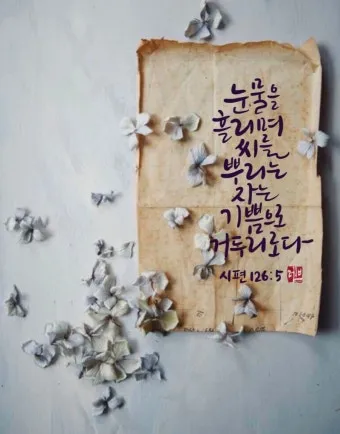 눈물을
흘리며
씨를
뿌리는
자는
기쁨으로
거두리로다
시편 126:5